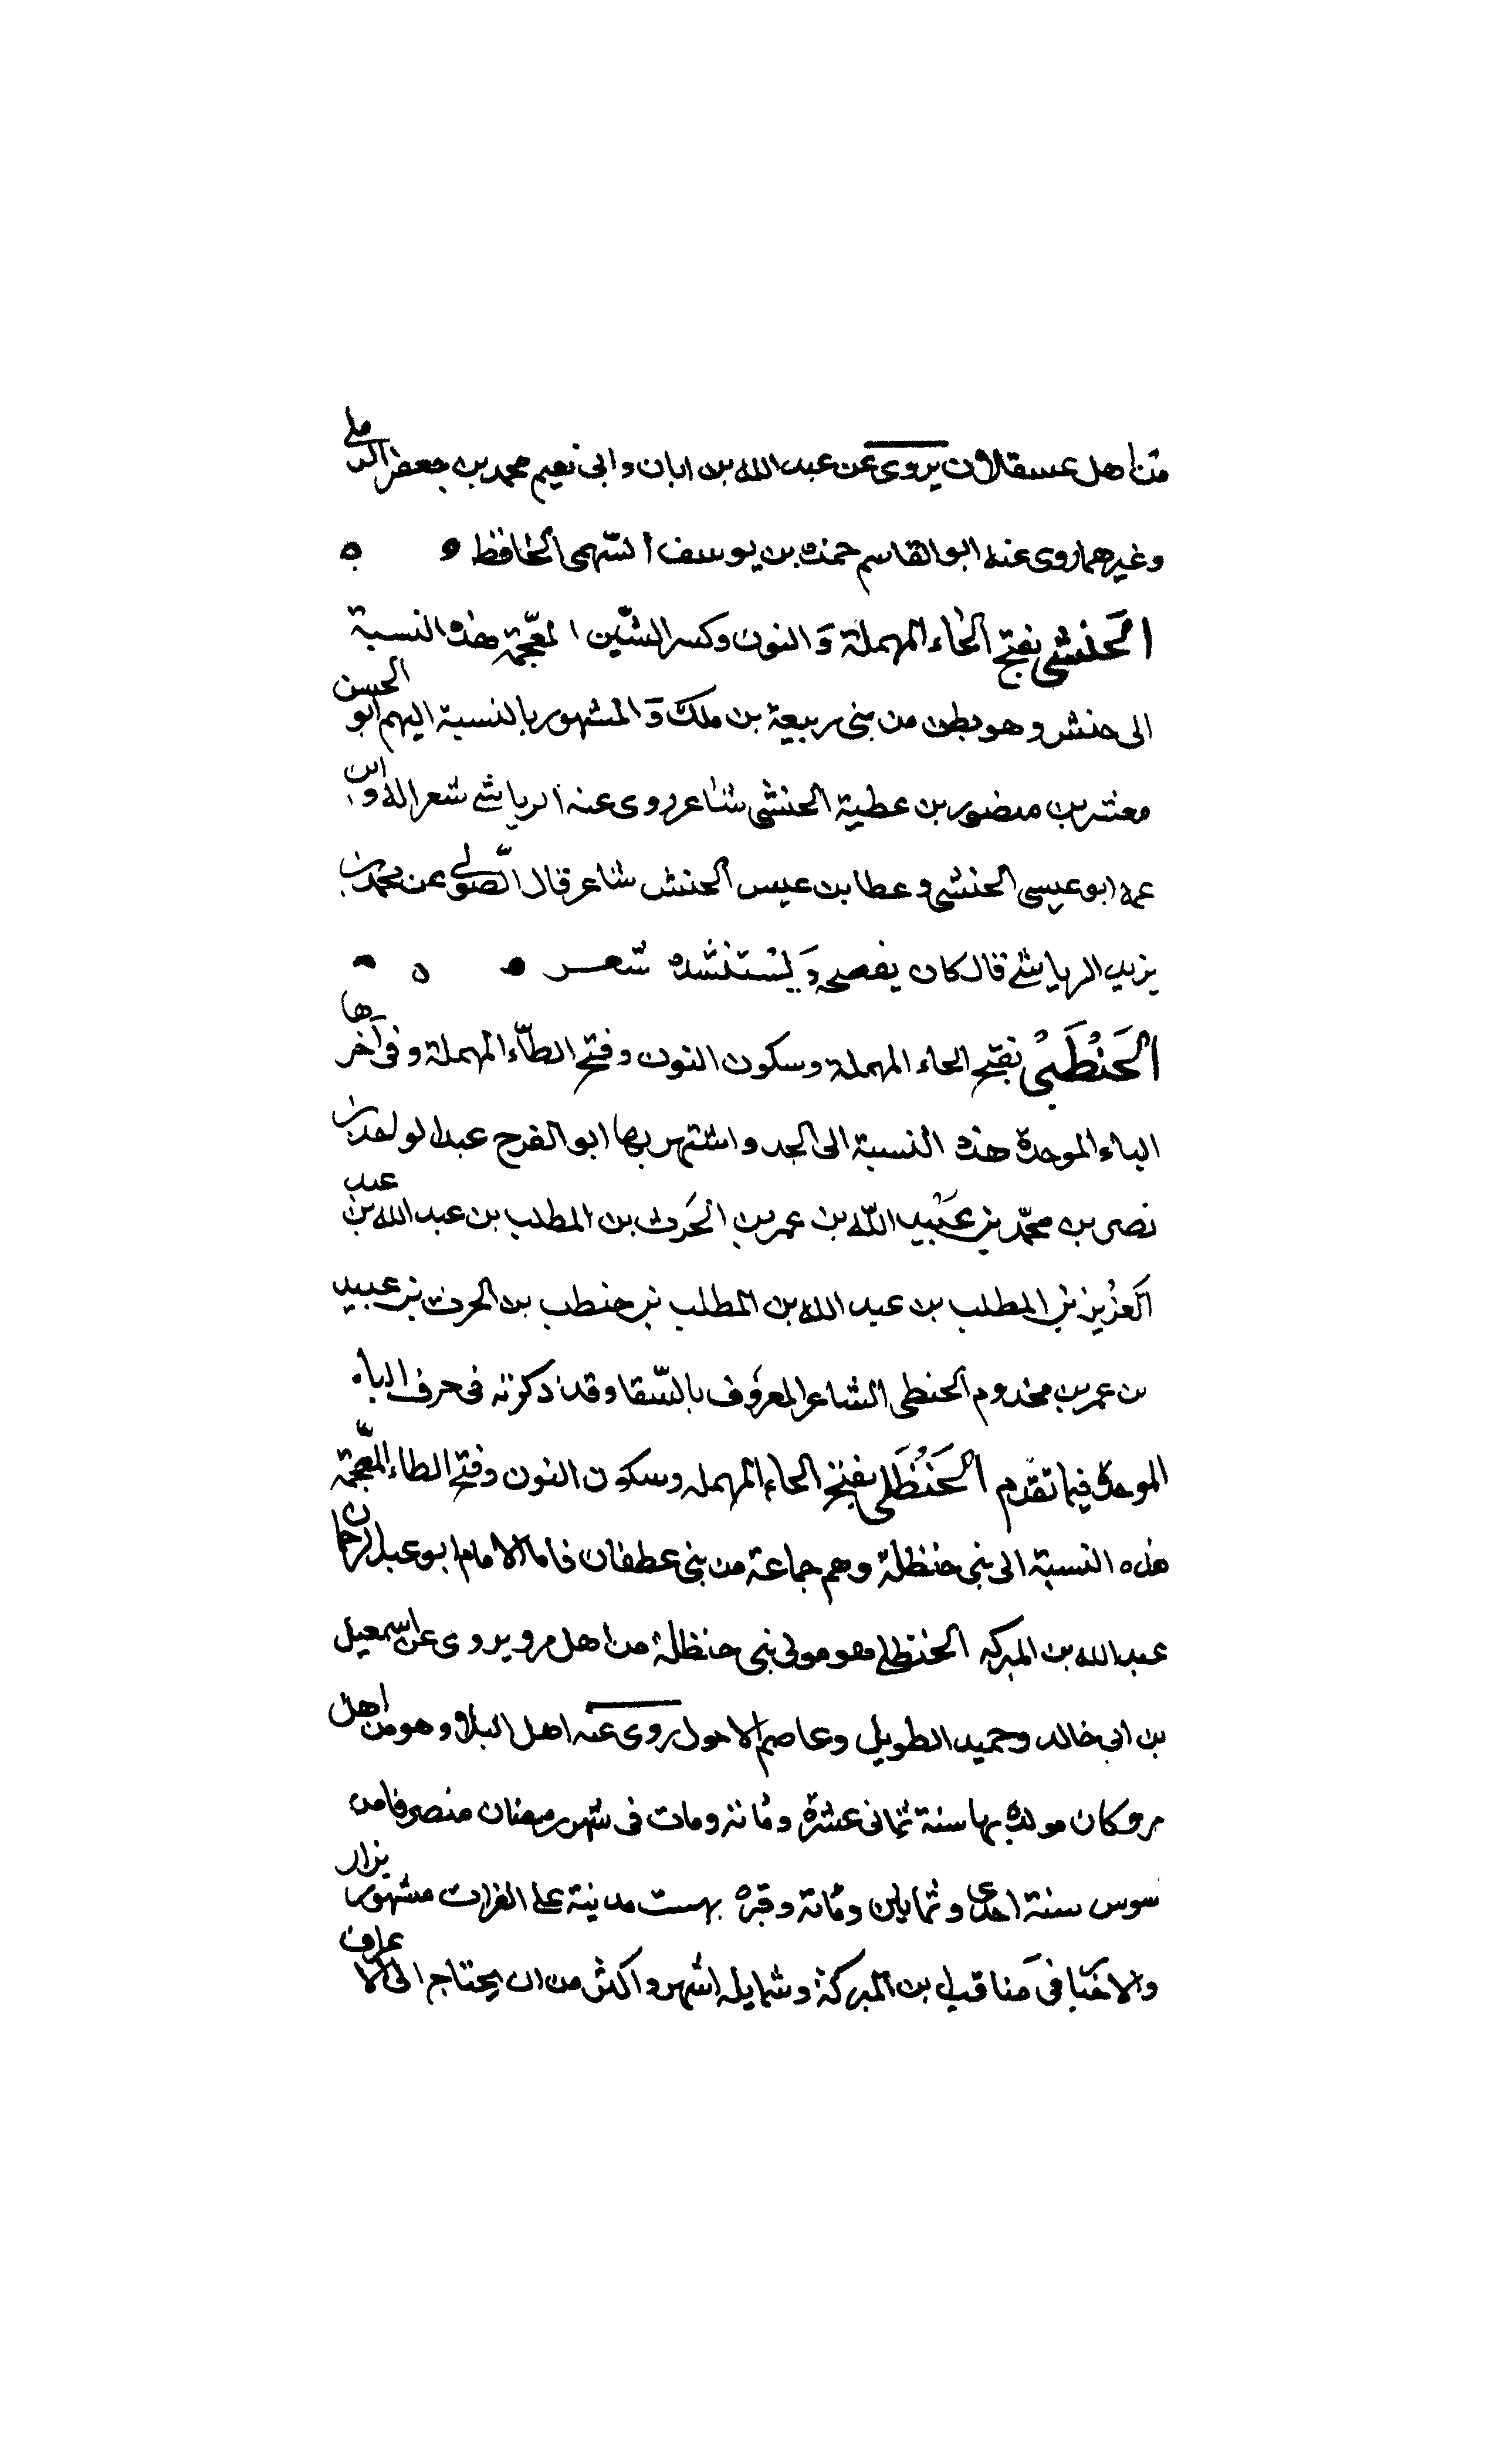 من اهل عسقلان يروى عن عبد الله بن ابان وابى نعيم محمد بن جعفر الرملى
وغيرهما روى عنه ابو القاسم حمزه بن يوسف السهمى الحافظ ه ه
الحنشى بفتح الحاء المهملة والنون وكسر الشين المعجمة هذه النسبة
الى حنش وهو بطن من بنى ربيعة بن ملك والمشهور بالنسبة اليهم ابو الحسن
معتمر بن منصور بن عطية الحنشى شاعر روى عنه الرياشى شعرا له وابن
عمه ابو عيسى الحنشى وعطا بن عيسى الحنش شاعر قال الصولى عن محمد بن
يزيد الرياشى قال كان يفصحه ويستنشده شعر ه ه
الحنطبى بفتح الحاء المهملة وسكون النون وفتح الطاء المهملة وفى آخرها
الباء الموحدة هذه النسبة الى الجد واشتهر بها ابو الفرح عبد الواحد بن
نصر بن محمد بن عبيد الله بن عمر بن الحرث بن المطلب بن عبد الله بن عبد
العزيز بن المطلب بن عبد الله بن المطلب بن حنطب بن الحرث بن عبيد
بن عمر بن مخدوم الحنطى الشاعر المعروف بالسقا وقد ذكرته فى حرف الباء
الموحدة فيما تقدم الحنظلى بفتح الحاء المهمله وسكون النون وفتح الطاء المعجمة
هذه النسبة الى بنى حنظلة وهم جماعة من بنى عطفان فاما الامام ابو عبد الرحمان
عبد الله بن المبركه الحنظلى فهو مولى بنى حنظلة من اهل مرو يروى عن اسمعيل
بن ابى خالد وحميد الطويل وعاصم الاحول روى عنه اهل البلاد وهو من اهل
مرو كان مولده بها سنة ثمانى عشرة ومائة ومات فى شهر رمضان منصرفا من
سوس سنة احدى وثمانين ومائة وقبره بهيت مدينة على الفرات مشهور يزار
والاخبا فى مناقب بن المبركة وشمايله اشهر واكثر من ان يحتاج الى الا عراف